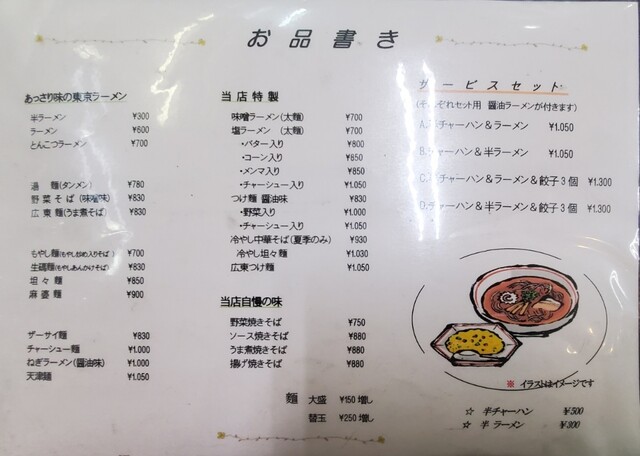 お品書き
あっさり味の東京ラーメン
半ラーメン ¥300
ラーメン ¥600
とんこつラーメン ¥700
湯 麺(タンメン) ¥780
野菜そば(味噌味) ¥830
広東麺(うま煮そば) ¥830
もやし麺(もやし炒め入りそば) ¥700
生碼麺(もやしあんかけそば) ¥830
坦々麺 ¥850
麻婆麺 ¥900
ザーサイ麺 ¥830
チャーシュー麺 ¥1.000
ねぎラーメン(醤油味) ¥1.000
天津麺 ¥1.050
当店特製
味噌ラーメン(太麺) ¥700
塩ラーメン (太麺) ¥700
・バター入り ¥800
・コーン入り ¥850
・メンマ入り ¥850
・チャーシュー入り ¥1.050
つけ麺 醤油味 ¥830
・野菜入り ¥1.000
・チャーシュー入り ¥1.050
冷やし中華そば(夏季のみ) ¥930
冷やし坦々麺 ¥1.030
広東つけ麺 ¥1.050
当店自慢の味
野菜焼きそば ¥750
ソース焼きそば ¥880
うま煮焼きそば ¥880
揚げ焼きそば ¥880
麺 大盛 ¥150増し
替玉 ¥250増し
サービスセット
(それぞれセット用 醤油ラーメンが付きます)
A.半チャーハン&ラーメン ¥1.050
B.チャーハン&半ラーメン ¥1.050
C.半チャーハン&ラーメン&餃子3個 ¥1.300
D.チャーハン&半ラーメン&餃子3個 ¥1.300
※ イラストはイメージです
☆ 半チャーハン ¥500
☆ 半ラーメン ¥300